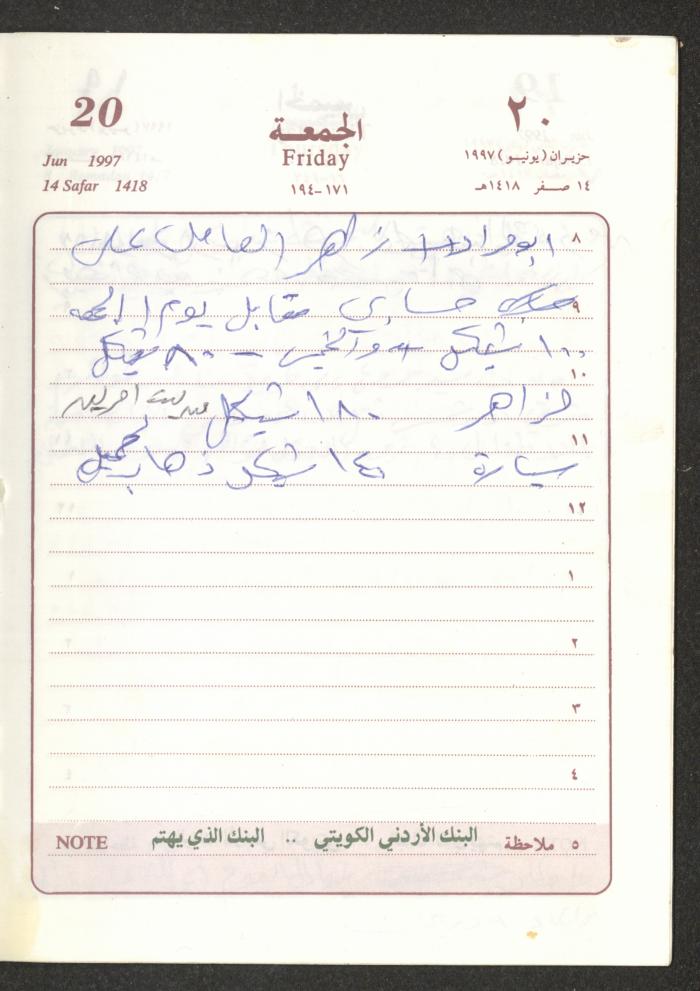 20
الجمعة
٢٠
Jun 1997
Friday
حزيران (يونيو) ١٩٩٧
14 Safar 1418
١٧١-١٩٤
١٤ صفر ١٤١٨هـ
٨ ابو مراد + زاهر العامل على
٩ حسابي مقابل يوم
١٠٠ شيكل + و - ٨٠ شيكل
١٠
لزاهر ١٨٠ شيكل
١١
سيارة ١٤٠ شيكل ذهاب
١٢
١
٢
٣
٤
٥ ملاحظة البنك الأردني الكويتي .. البنك الذي يهتم NOTE